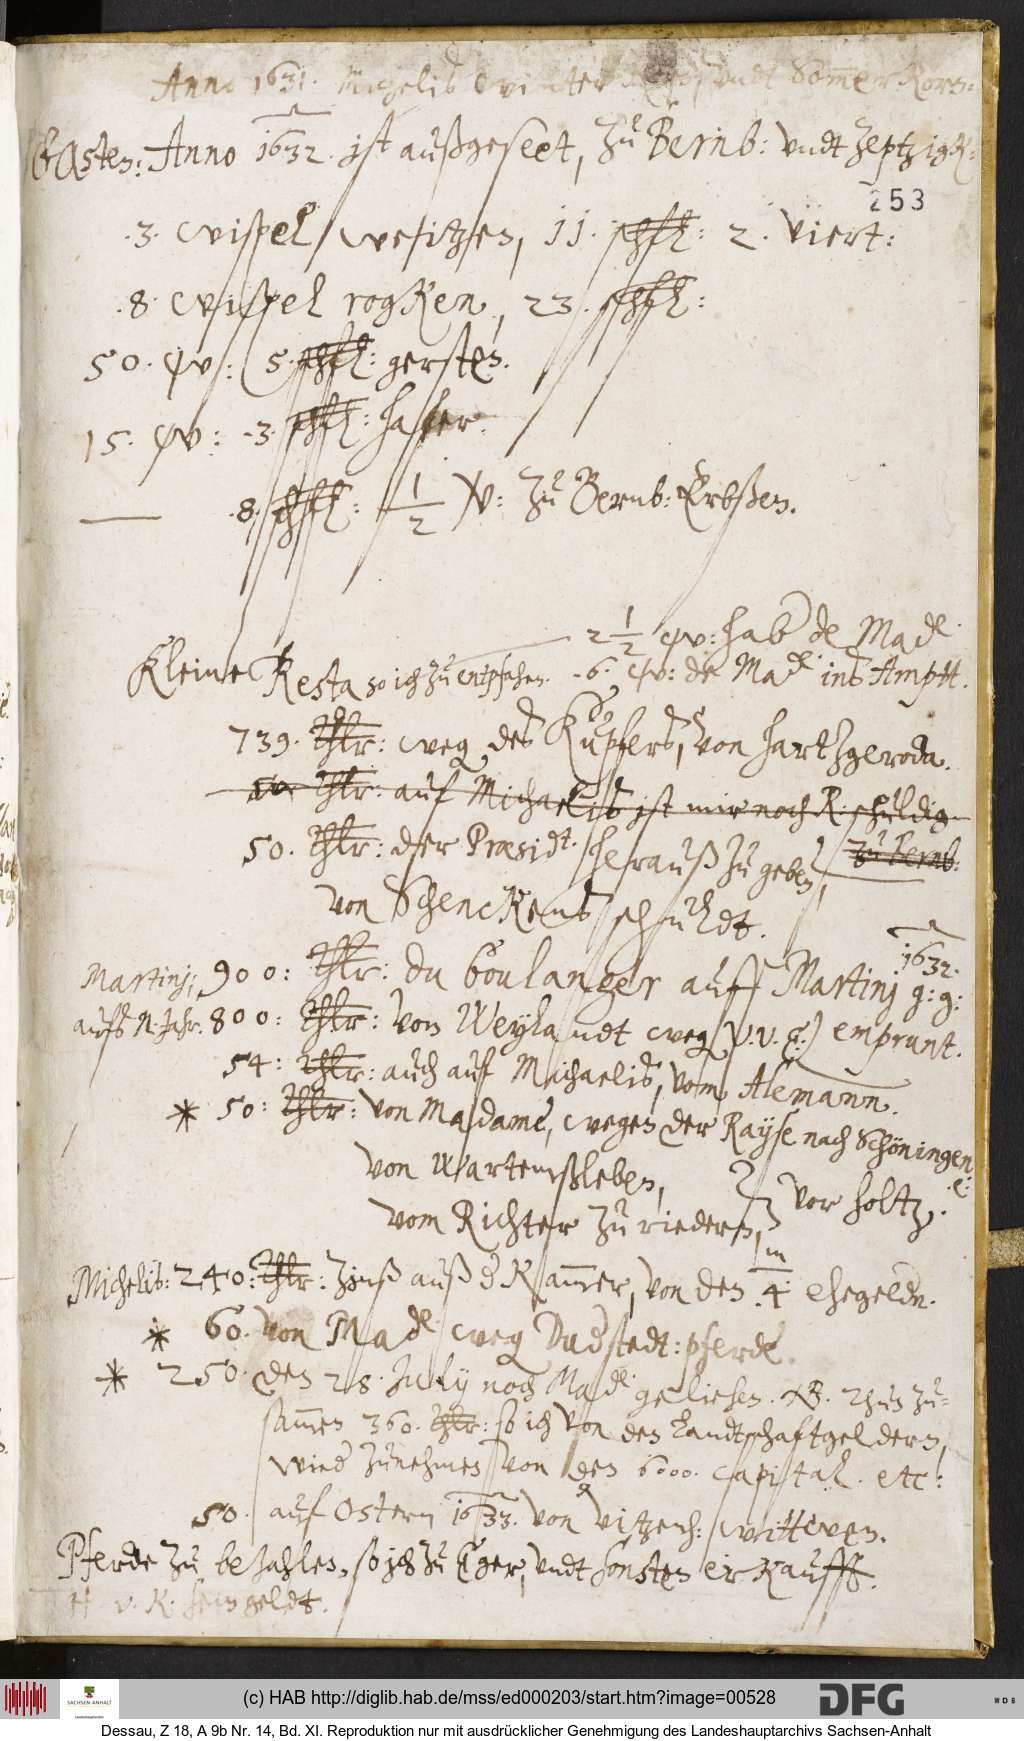 Anno 1631. Michelis winter Korn, vndt Sommer Korn:
Ostern: Anno 1632. ist außgeseet, zu Bernb: vndt Zeptzigk:
253
.3. wispel weitzen, 11. schfl: 2. viert:
.8. wispel rogken, 23. schfl:
50. w: 5. schfl: gersten.
15. w: .3. schfl: haffer.
.8. schfl: 1/2 V: zu Bernb: Erbßen.
2 1/2 w: hab de Mad.
Kleine Resta so ich zu entpfahen. .6. w: de Mad. ins Amptt.
739. thlr: weg des Kupfers, von Hartzgeroda.
50 thlr: auf Michaelis ist mir noch R. schuldig
50. thlr: der Præsidt. herauß zu geben, zu Bernb:
von Schenckens schuldt.
1632.
Martinj; 900: thlr: du boulanger auff Martinj g: g:
aufs N. Jahr. 800: thlr: von Weylandt weg V. V. E.) emprunt.
54: thlr: auch auf Michaelis, vom Alemann.
* 50: thlr: von Madame, wegen der Rayse nach Schöningen
von Wartemßleben,
vor holtz. e:
vom Richter zu riedern,
Michelis: 240: thlr: Zinß auß d Kammer, von den .4. m ehegeldn.
* 60. von Mad. weg Dudstedt: pferde.
* 250. den 28. July noch Mad. geliehen. NB. Thut zu=
sammen 360. thlr: so ich von den Landtschaftgeldern,
wied zunehmen von den 6000. capital. etc!
50. auf Ostern 1633. von vitzenh: wittwen.
Pferde zu bezahlen, so ich zu Eger, vndt sonsten erkaufft.
H v. K. sein geldt.
(c) HAB http://diglib.hab.de/mss/ed000203/start.htm?image=00528
DFG
WDB
SACHSEN-ANHALT
Dessau, Z 18, A 9b Nr. 14, Bd. XI. Reproduktion nur mit ausdrücklicher Genehmigung des Landeshauptarchivs Sachsen-Anhalt